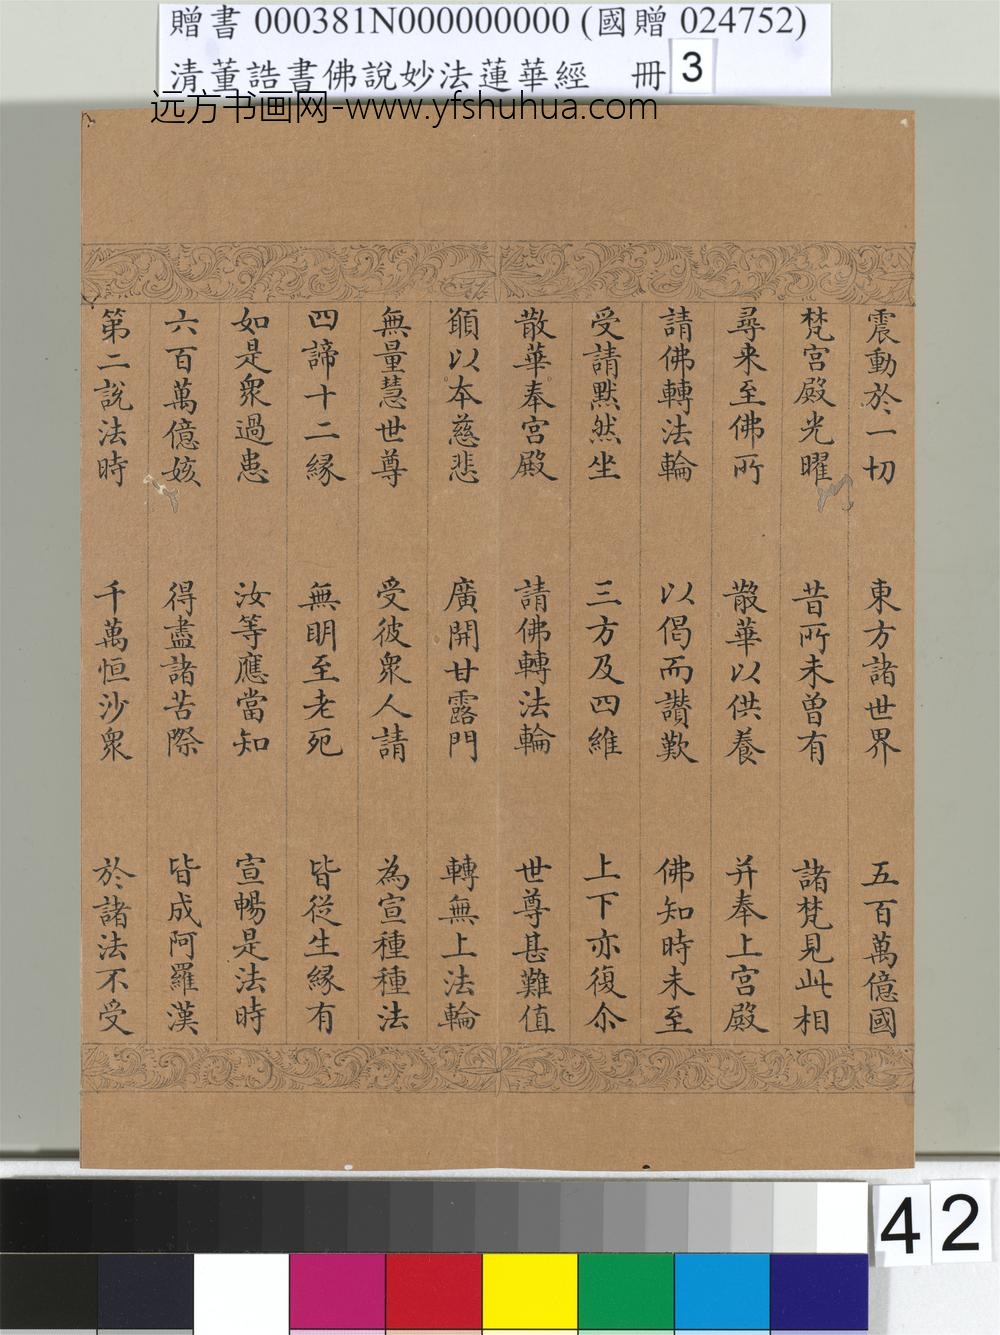 贈書 000381N000000000 (國贈 024752)
清董誥書佛說妙法蓮華經 冊 3
远方书画网-www.yfshuhua.com
震動於一切 東方諸世界 五百萬億國
梵宮殿光曜 昔所未曾有 諸梵見此相
尋来至佛所 散華以供養 并奉上宮殿
請佛轉法輪 以偈而讚歎 佛知時未至
受請默然坐 三方及四維 上下亦復尒
散華奉宮殿 請佛轉法輪 世尊甚難值
願以本慈悲 廣開甘露門 轉無上法輪
無量慧世尊 受彼衆人請 為宣種種法
四諦十二緣 無明至老死 皆從生緣有
如是衆過患 汝等應當知 宣暢是法時
六百萬億姟 得盡諸苦際 皆成阿羅漢
第二說法時 千萬恒沙衆 於諸法不受
42